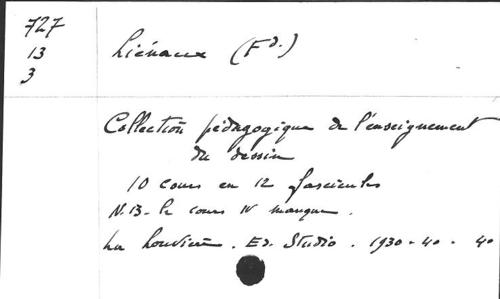 727
13
3
Liénaux (Fd.)
Collection pédagogique de l'enseignement
du dessin
10 cours en 12 fascicules
N.B- le cours IV manque.
La Louvière. Ed. Studio. 1930-40. 4°